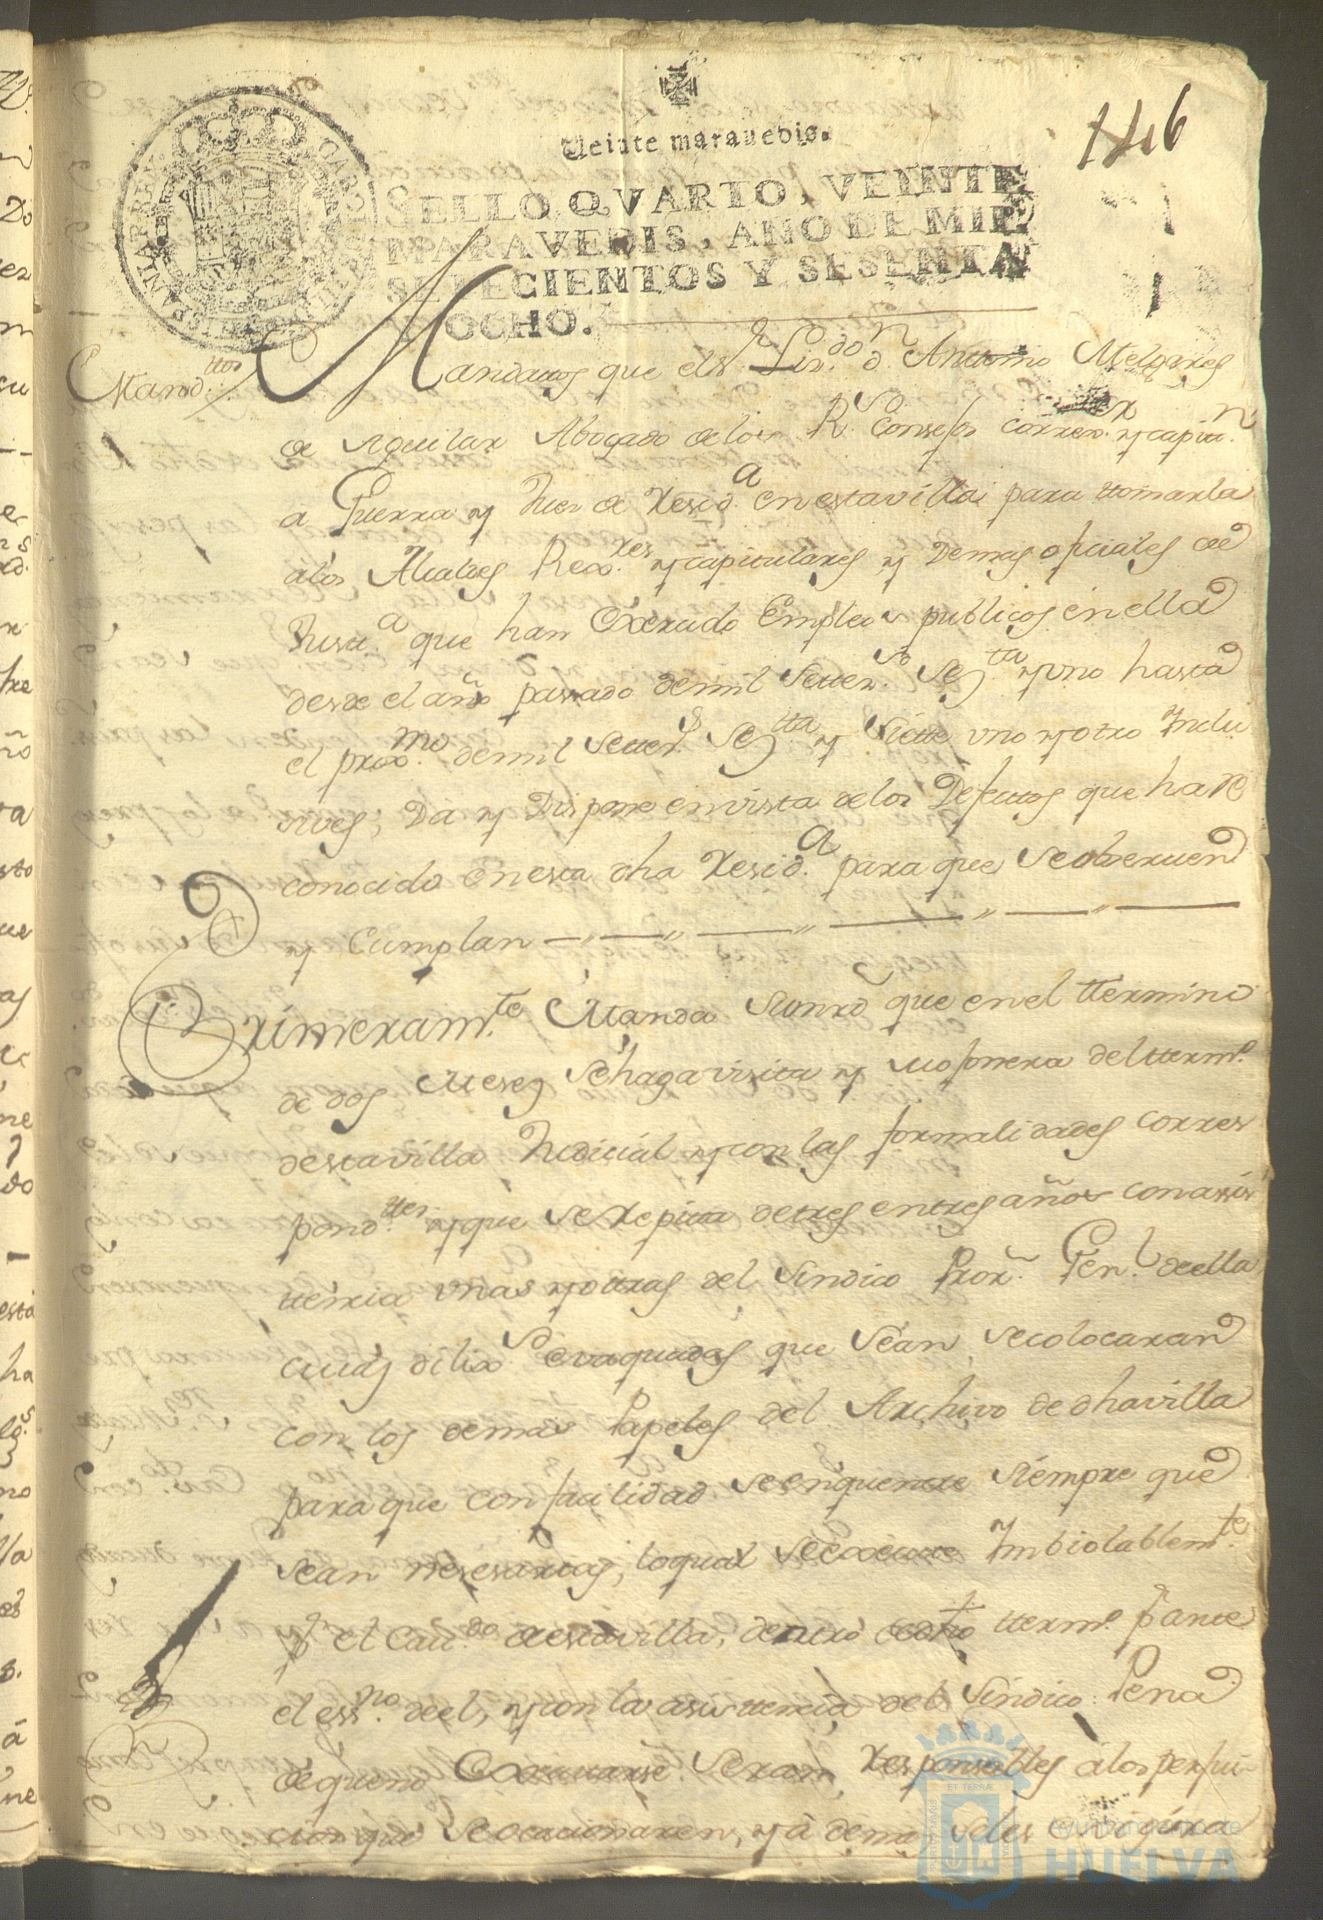 146
Veinte maravedis.
SELLO QVARTO, VEINTE
MARAVEDIS, AÑO DE MIL
SETECIENTOS Y SESENTA
Y OCHO.
Mand.ttos
Mandattos que el s.r Liz.do d.n Anttonio Melgares
de Aguilar Abogado de los R.s Consejos correx.r y capitt.n
a Guerra y Juez de Resid.a en esta villa para ttomarla
a los Alcaldes Rexo.res y capitulares y Demas oficiales de
Justt.a que han Exercido Empleos publicos en ella
desde el año passado de mil Setter.s Ses.tta y uno hasta
el prox.mo de mil Setter.s Ses.tta y Siette uno y otro Inclu
sives, Da y Dispone en vista de los Defectos que ha re
conocido en esta dha Resid.a para que se obseruen
y Cumplan
Primeram.te Manda Su mrd que en el ttermino
de dos Meses se haga visita y Mojonera del tterm.o
de esta villa Judicial y con las formalidades corres
pond.ttes y que se repitta de tres en tres años con asis
ttencia unas y ottras del Sindico Pror. Gen.l de ella
cuias dilix.s evaquadas que sean, se colocaran
con los demas Papeles del Archivo de dha villa
para que con facilidad se enquentre siempre que
sean nesesarias, lo qual se execute Imbiolablem.te
p.r el Cau.do de esta villa, dentro de dho tterm.o p.r ante
el ess.no de el, y con la asisttencia del Sindico Pena
de que no Executarse seran responsables a los perjui
cios que se ocacionaren, y a demas se les exigira
Ayuntamiento de
HUELVA